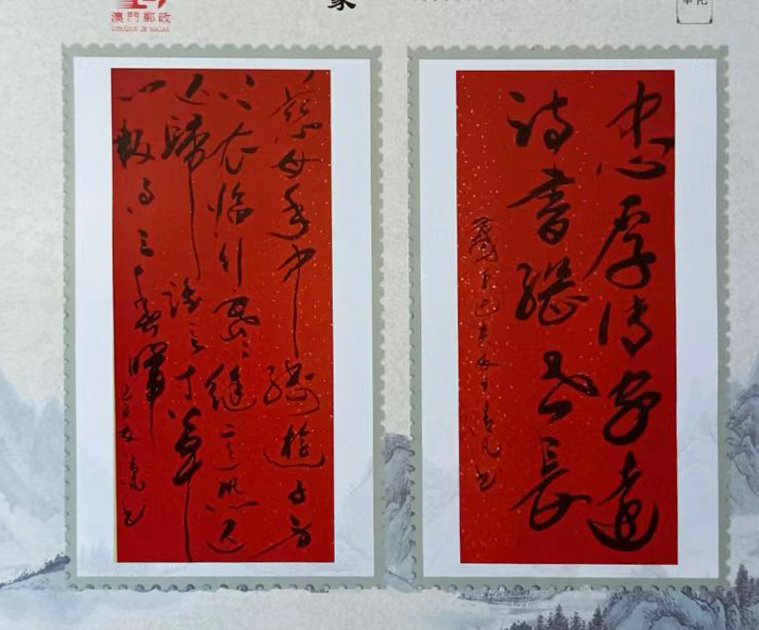 澳門郵政
CORREIOS DE MACAU
慈母手中綫遊子身
上衣臨行密密縫意恐迟
迟歸誰言寸草
心報得三春暉
忠厚傳家遠
詩書繼世長